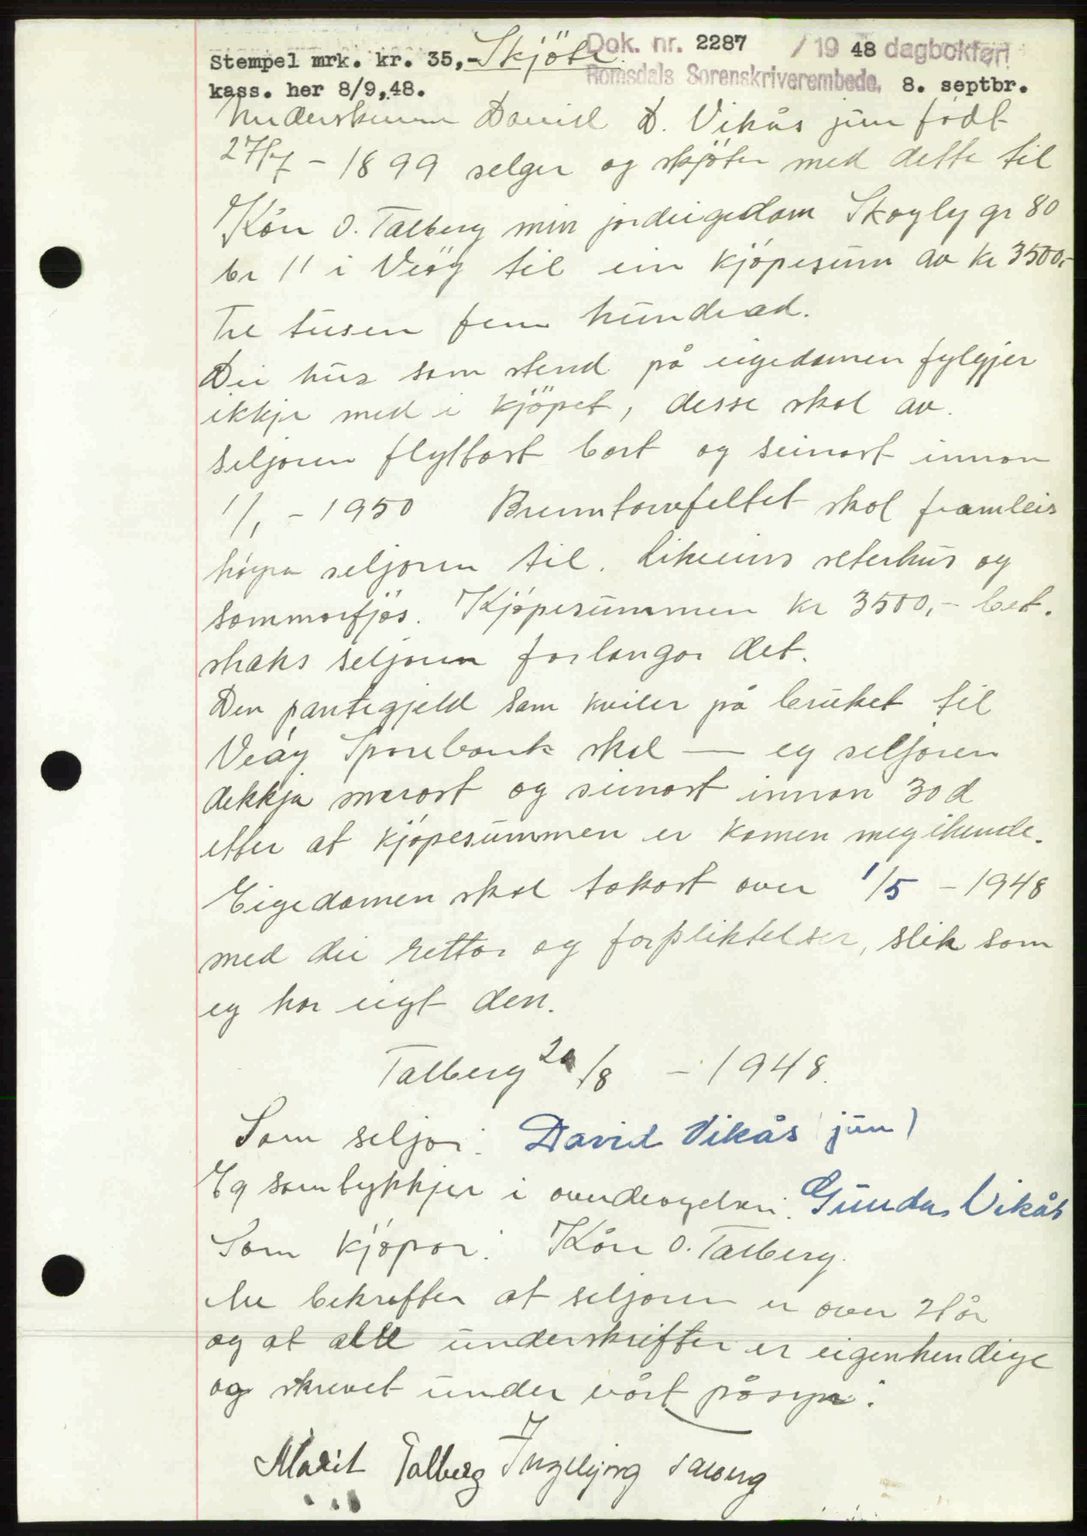 Stempel mrk. kr. 35,- Skjöte. Dok. nr. 2287 / 19 48 dagbokført
kass. her 8/9,48. Romsdals Sorenskriverembede, 8. septbr.
Underskriven David D. Vikås jun født
27/7 - 1899 selger og skjöter med dette til
Kåre O. Talberg min jordeigedom Skogly gr 80
br 11 i Veøy til ein kjöpesum av kr 3500,-
Tre tusen fem hundrad.
Dei hus som stend på eigedomen fylgjer
ikkje med i kjöpet, desse skal av
seljaren flyttast bort og seinast innan
1/1 - 1950 Brenntorvfeltet skal framleis
høyra seljaren til. Likeeins seterhus og
sommarfjös. Kjöpesummen kr 3500,- bet.
straks seljaren forlangar det.
Den pantegjeld som kviler på bruket til
Veøy Sparebank skal — eg seljaren
dekkja snarast og seinast innan 30 d
etter at kjöpesummen er komen meg ihende.
Eigedomen skal takast over 1/5 - 1948
med dei rettar og forpliktelser, slik som
eg har eigt den.
Talberg 20/8 - 1948.
Som seljar: David Vikås jun)
Eg samtykkjer i overdragelsen: Gunda Vikås
Som kjöpar: Kåre O. Talberg.
Me bekrefter at seljaren er over 21 år
og at alle underskrifter er eigenhendige
og skrevet under vårt påsyn:
Marit Talberg Ingebjørg Talberg